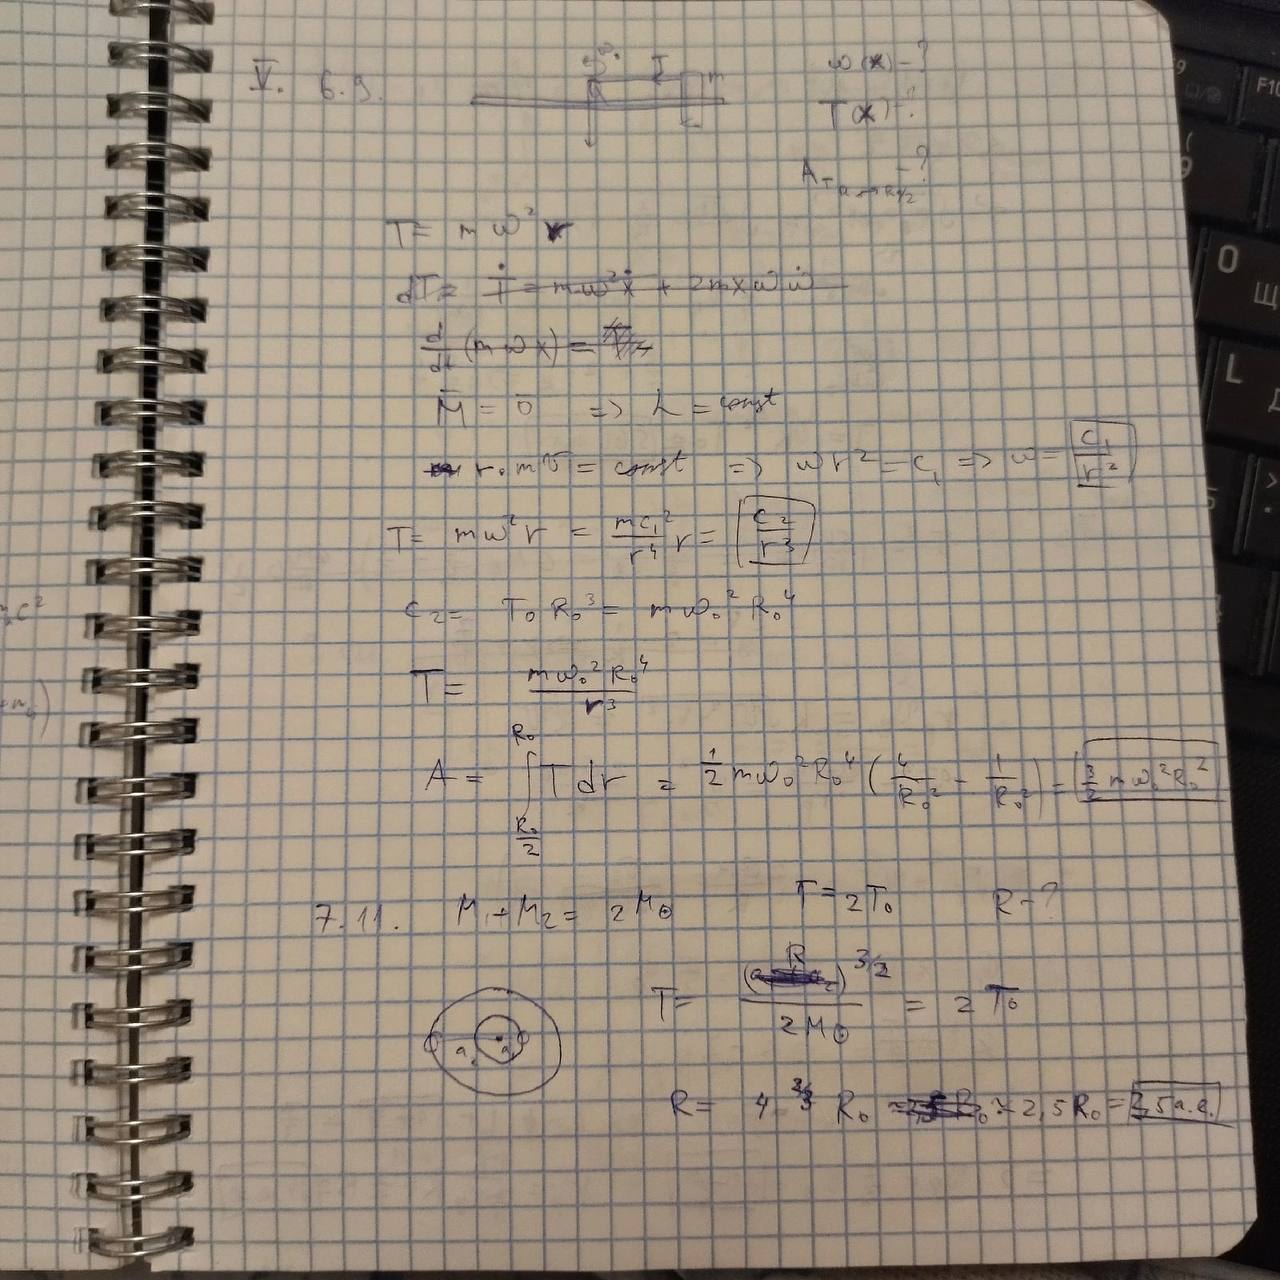 V. 6.9. T m ω(x) - ?
T(x) - ?
A_T R→R/2 - ?
T = mω²r
dT = Ṫ = mω²ẋ + 2mxωω̇
d/dt (mωx) =
M̄ = 0 => L = const
r·mv = const => ωr² = c₁ => ω = c₁/r²
T = mω²r = mc₁²/r⁴ r = c₂/r³
c₂ = T₀R₀³ = mω₀²R₀⁴
T = mω₀²R₀⁴/r³
A = ∫_{R₀/2}^{R₀} T dr = 1/2 mω₀²R₀⁴ (4/R₀² - 1/R₀²) = 3/2 mω₀²R₀²
7.11. M₁ + M₂ = 2M⊙ T = 2T₀ R - ?
T = (R)^{3/2}/2M⊙ = 2T₀
a₁ a₂
R = 4^{2/3} R₀ ≈ 2,5R₀ = 2,5 а.е.
F9
F10
9
O
Щ
L
Д
c²